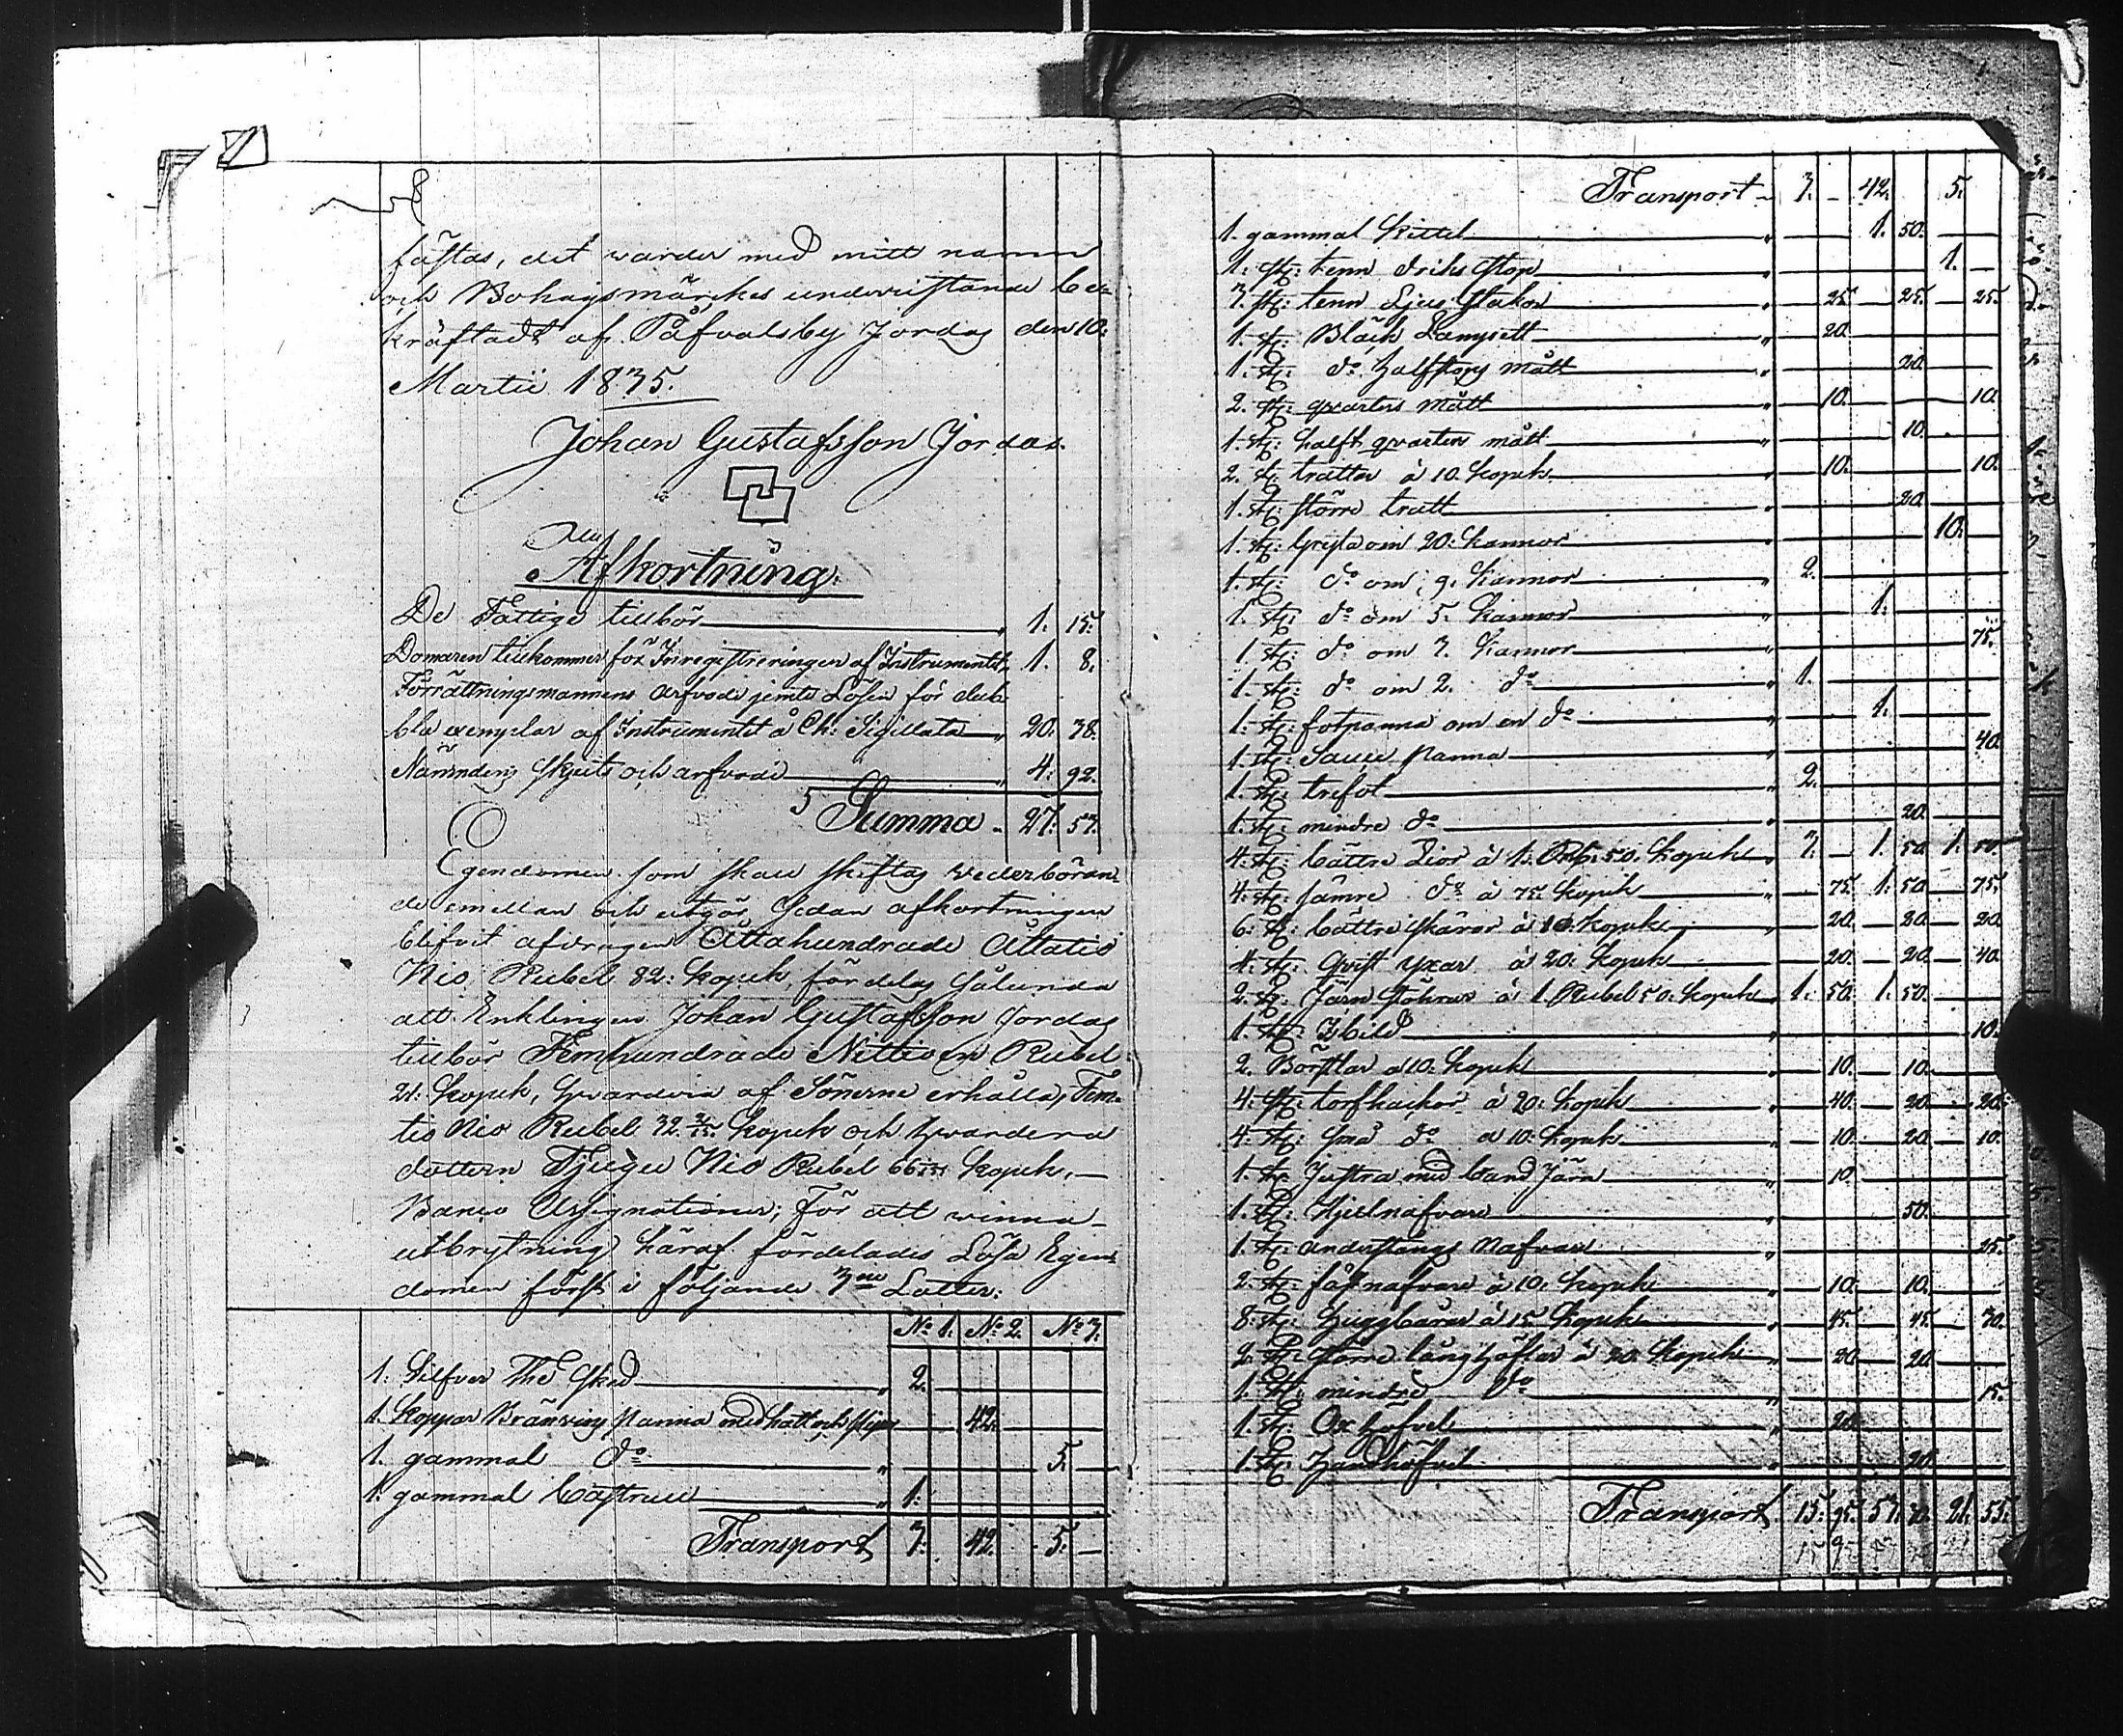 fästas, det warder med mitt namn
och Bohagsmärkes underristande be-
kräftadt af Påfvalsby Jordas den 10:
Martii 1835.
Johan Gustafsson Jordas.
Afkortning.
De Fattige tillkör 1. 15.
Domaren tillkommer för Inregistreringen af Instrumentet 1. 8.
Förrättningsmannens arfvode jemte Lösen för dub-
bla exemplar af Instrumentet å Ch: Sigillata 20. 38.
Nämndens skjuts och arfvode 4. 92.
Summa 27. 53.
Egendomen som skall skiftas wederböran-
de emellan och utgör, sedan afkortningen
blifvit afdragen Åttahundrade Åttatio
Nio Rubel 82: Kopek, fördelas sålunda
att Enklingen Johan Gustafsson Jordas
tillkör Femhundrade Nittio en Rubel
21: Kopek, hwardera af Sönerne erhålla Fem-
tio Nio Rubel 32 Kopek och hwardera
dottern Tjugu Nio Rubel 66 Kopek,
Banco Assignationer; För att winna
utbrytning häraf fördelades Lösa Egen-
domen först i följande 3ne Lotter:
No 1. No 2. No 3.
1. Silfver The Sked 2.
1. Koppar Bränvins Panna med hatt och pipor 42.
1. gammal do 5.
1. gammal Castrull 1.
Transport 3. 42. 5.
Transport 3. 42. 5.
1. gammal Kittel 1. 50.
1. st: tenn driks stop 1.
3. st: tenn Ljus Stakar 25. 25. 25.
1. st: Bläck Lampett 20.
1. st: do halfstops mått 20.
2. st: qvarters mått 10. 10.
1. st: halft qvarters mått 10.
2. st: trattar à 10. Kopek 10. 10.
1. st: större tratt 20.
1. st: Gryta om 20: Kannor 10.
1. st: do om 9. Kannor 2.
1. st: do om 5. Kannor 1.
1. st: do om 3. Kannor 75.
1. st: do om 2. do 1.
1. st: fotpanna om en do 1.
1. st: Panna 40.
1. st: trefot 2.
1. st: mindre do 20.
4. st: bättre Liar à 1. Rub: 50. Kopek 3. 1. 50. 1. 50.
4. st: sämre do à 75. Kopek 75. 1. 50. 75.
6. st: bättre skäror à 10. Kopek 20. 20. 20.
4. st: Qvist yxar à 20: Kopek 20. 20. 40.
2. st: Järn Störar à 1. Rubel 50. Kopek 1. 50. 1. 50.
1. st: Isbill 10.
2. Borstar a 10: Kopek 10. 10.
4. st: torfhackor à 20: Kopek 40. 20. 20.
4. st: små do a 10: Kopek 10. 20. 10.
1. st: med band Järn 10.
1. st: Hjulnafvare 50.
1. st: Nafvare 25.
2. st: nafvare à 10: Kopek 10. 10.
8. st: Huggbårar à 15. Kopek 45. 45. 30.
2. st: större långhöflar à 20. Kopek 20. 20.
1. st: mindre do 15.
1. st: Ox höfvel 20.
1. st: Handhöfvel 20.
Transport 15. 95. 53. 21. 55.